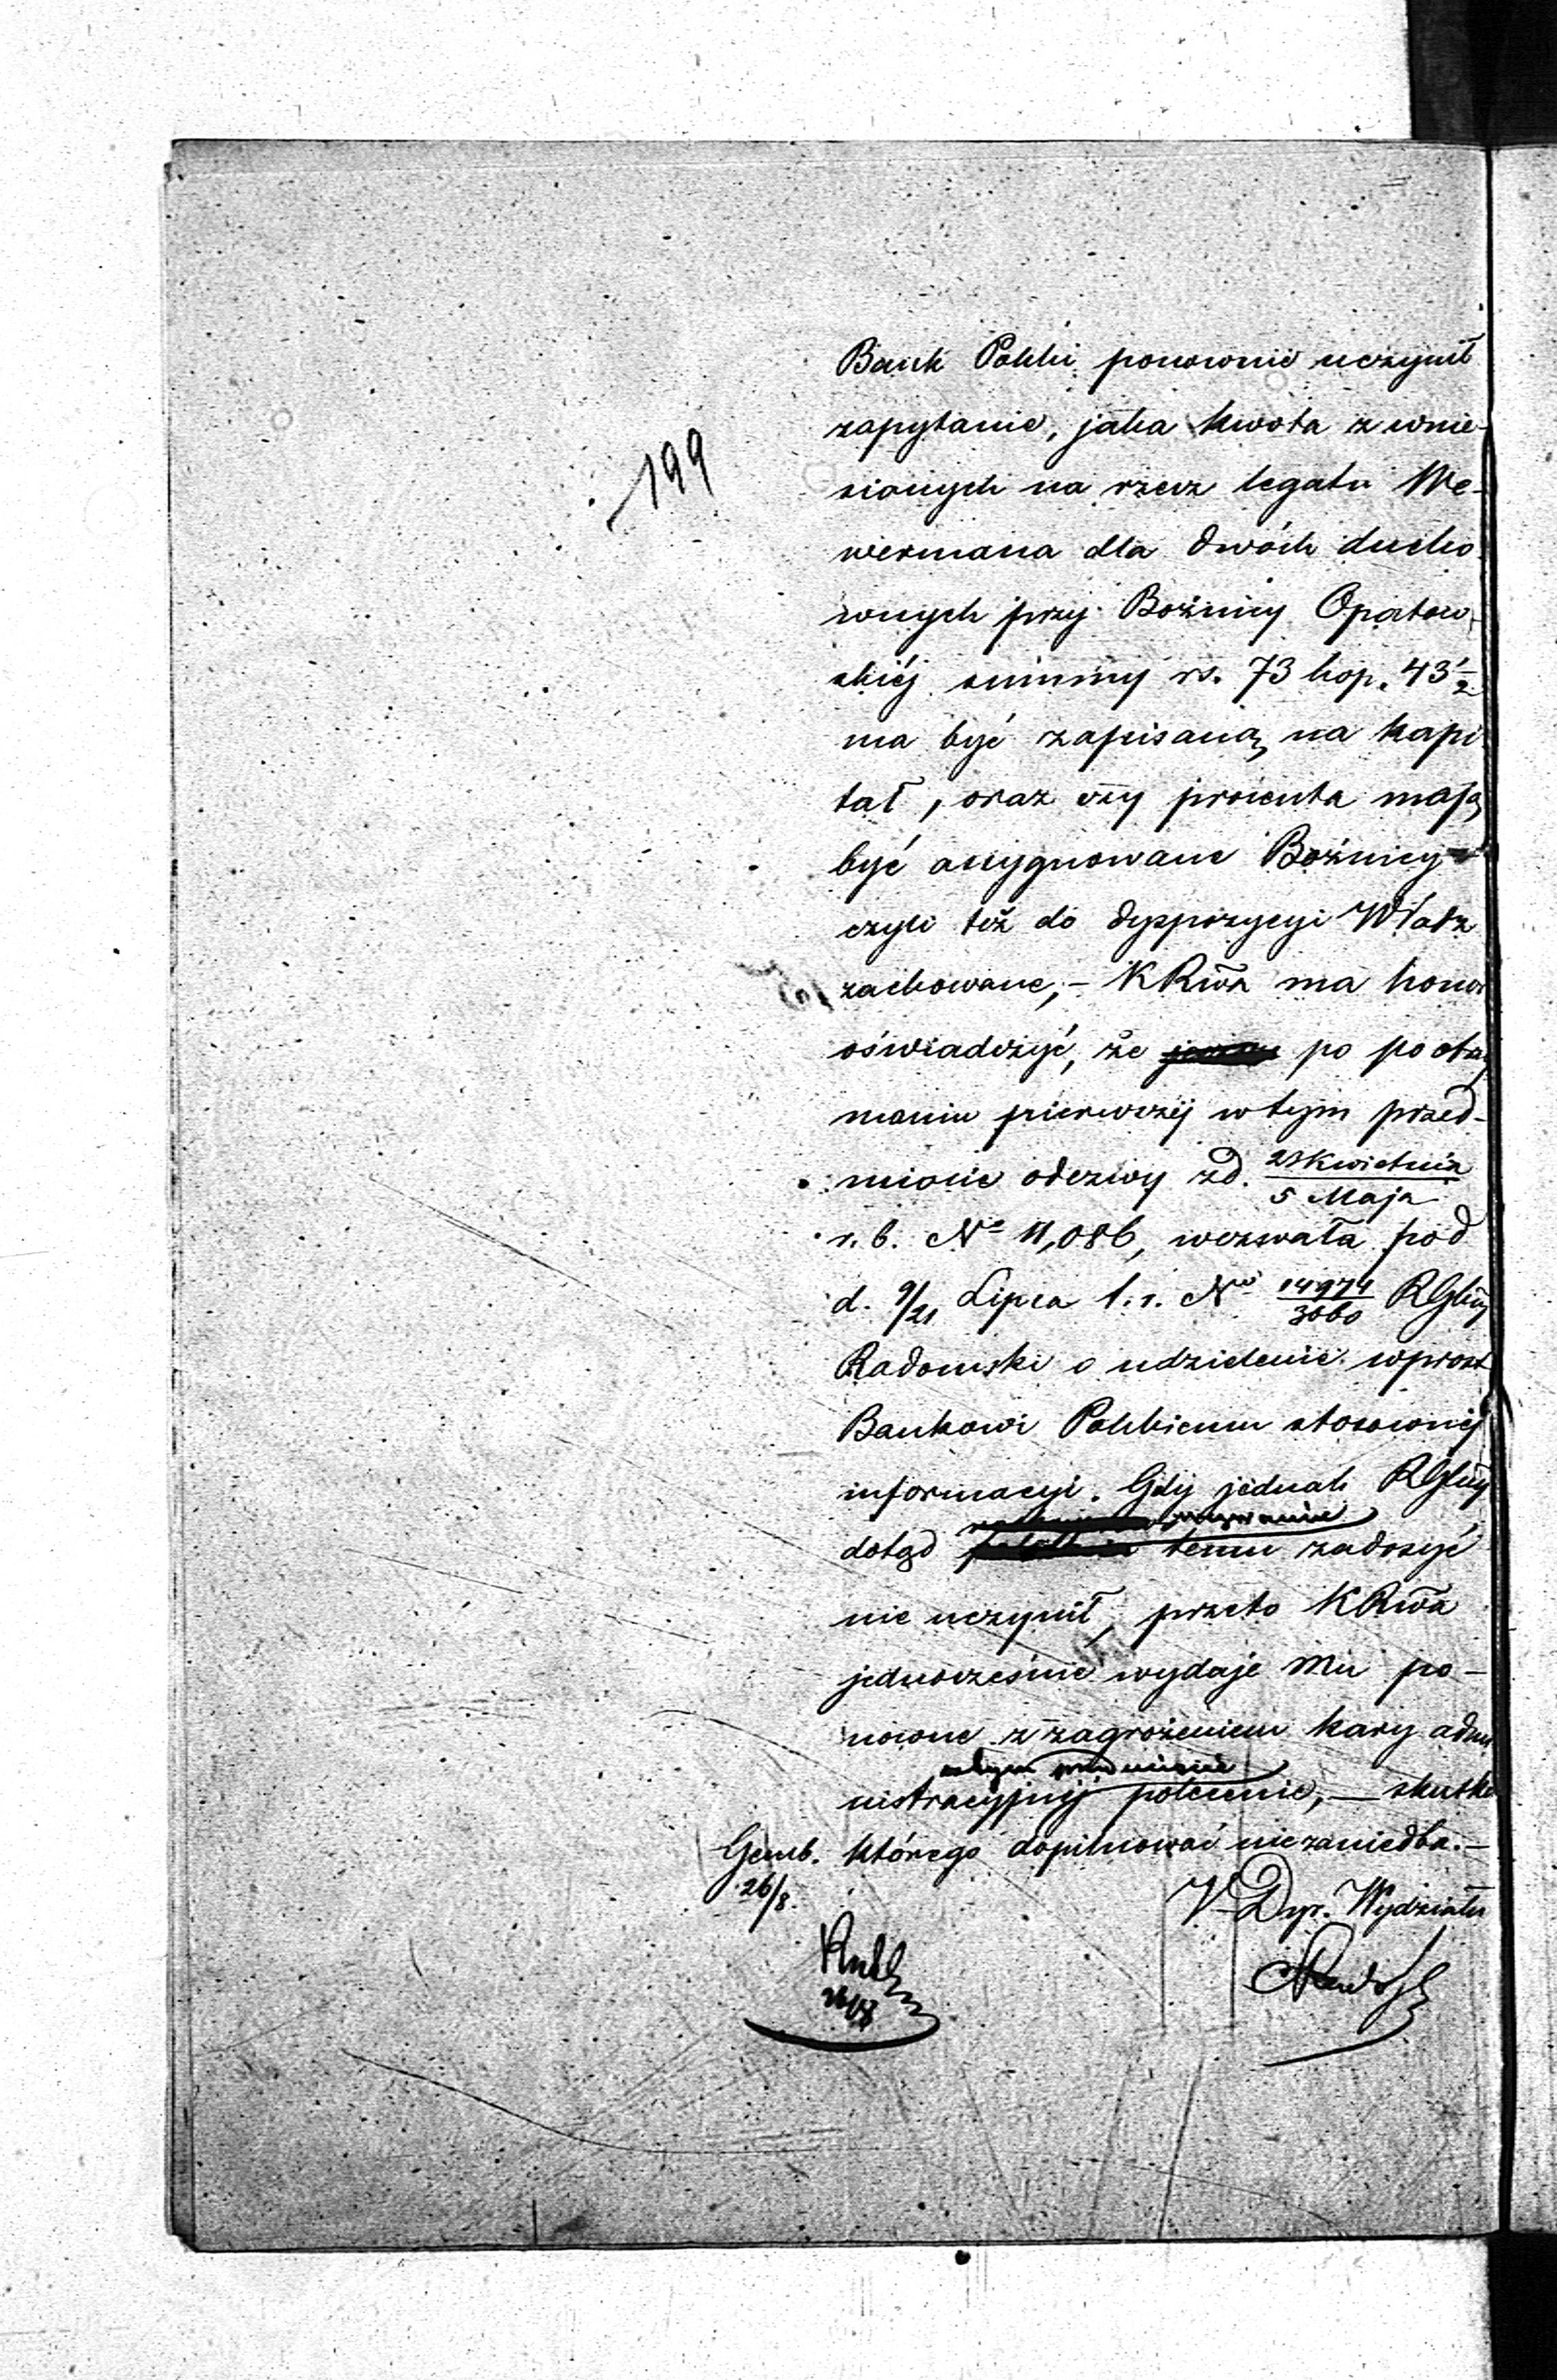 199
Bank Polski ponownie uczynił
zapytanie, jaka kwota z wnie-
sionych na rzecz legatu We-
wermana dla dwóch ducho
wnych przy Bożnicy Opatow
skiéj summy rs. 73 kop. 43½
ma być zapisaną na kapi
tał, oraz czy procenta mają
być assygnowane Bożnicy
czyli też do dyspozycyi Władz
zachowane, – KRwa ma honor
oświadczyć, że po po otrzy
maniu pierwszéj w tym przed-
miocie odezwy z d. 23 Kwietnia / 5 Maja
r. b. No 11,086, wezwała pod
d. 9/21 Lipca t. r. No 14974/3060 RGlny
Radomski o udzielenie wprost
Bankowi Polskiemu stosownéj
informacyi. Gdy jednak RGlny
wezwaniu
dotąd temu zadosyć
nie uczynił, przeto KRwa
jednocześnie wydaje Mu po-
nowne z zagrożeniem kary admi
w tym przedmiocie
nistracyjnéj polecenie, — skutku
Gemb. którego dopilnować niezaniedba. —
26/8.
V-Dyr. Wydziału
26/8